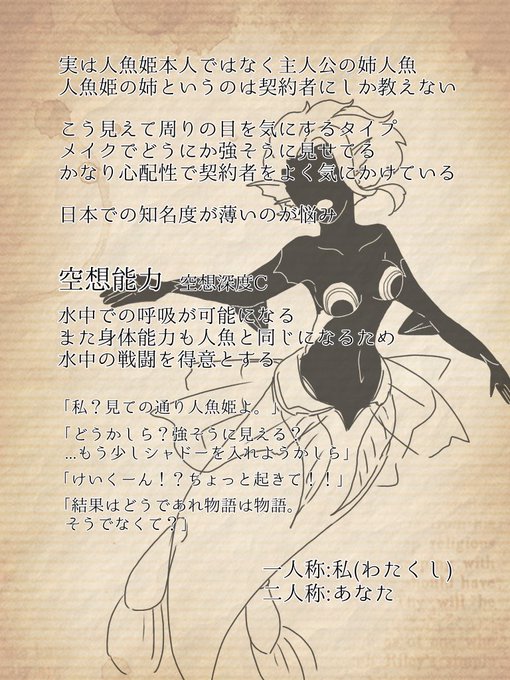 実は人魚姫本人ではなく主人公の姉人魚
人魚姫の姉というのは契約者にしか教えない
こう見えて周りの目を気にするタイプ
メイクでどうにか強そうに見せてる
かなり心配性で契約者をよく気にかけている
日本での知名度が薄いのが悩み
空想能力 空想深度C
水中での呼吸が可能になる
また身体能力も人魚と同じになるため
水中の戦闘を得意とする
「私？見ての通り人魚姫よ。」
「どうかしら？強そうに見える？
…もう少しシャドーを入れようかしら」
「けいくーん！？ちょっと起きて！！」
「結果はどうであれ物語は物語。
そうでなくて？」
一人称:私(わたくし)
二人称:あなた